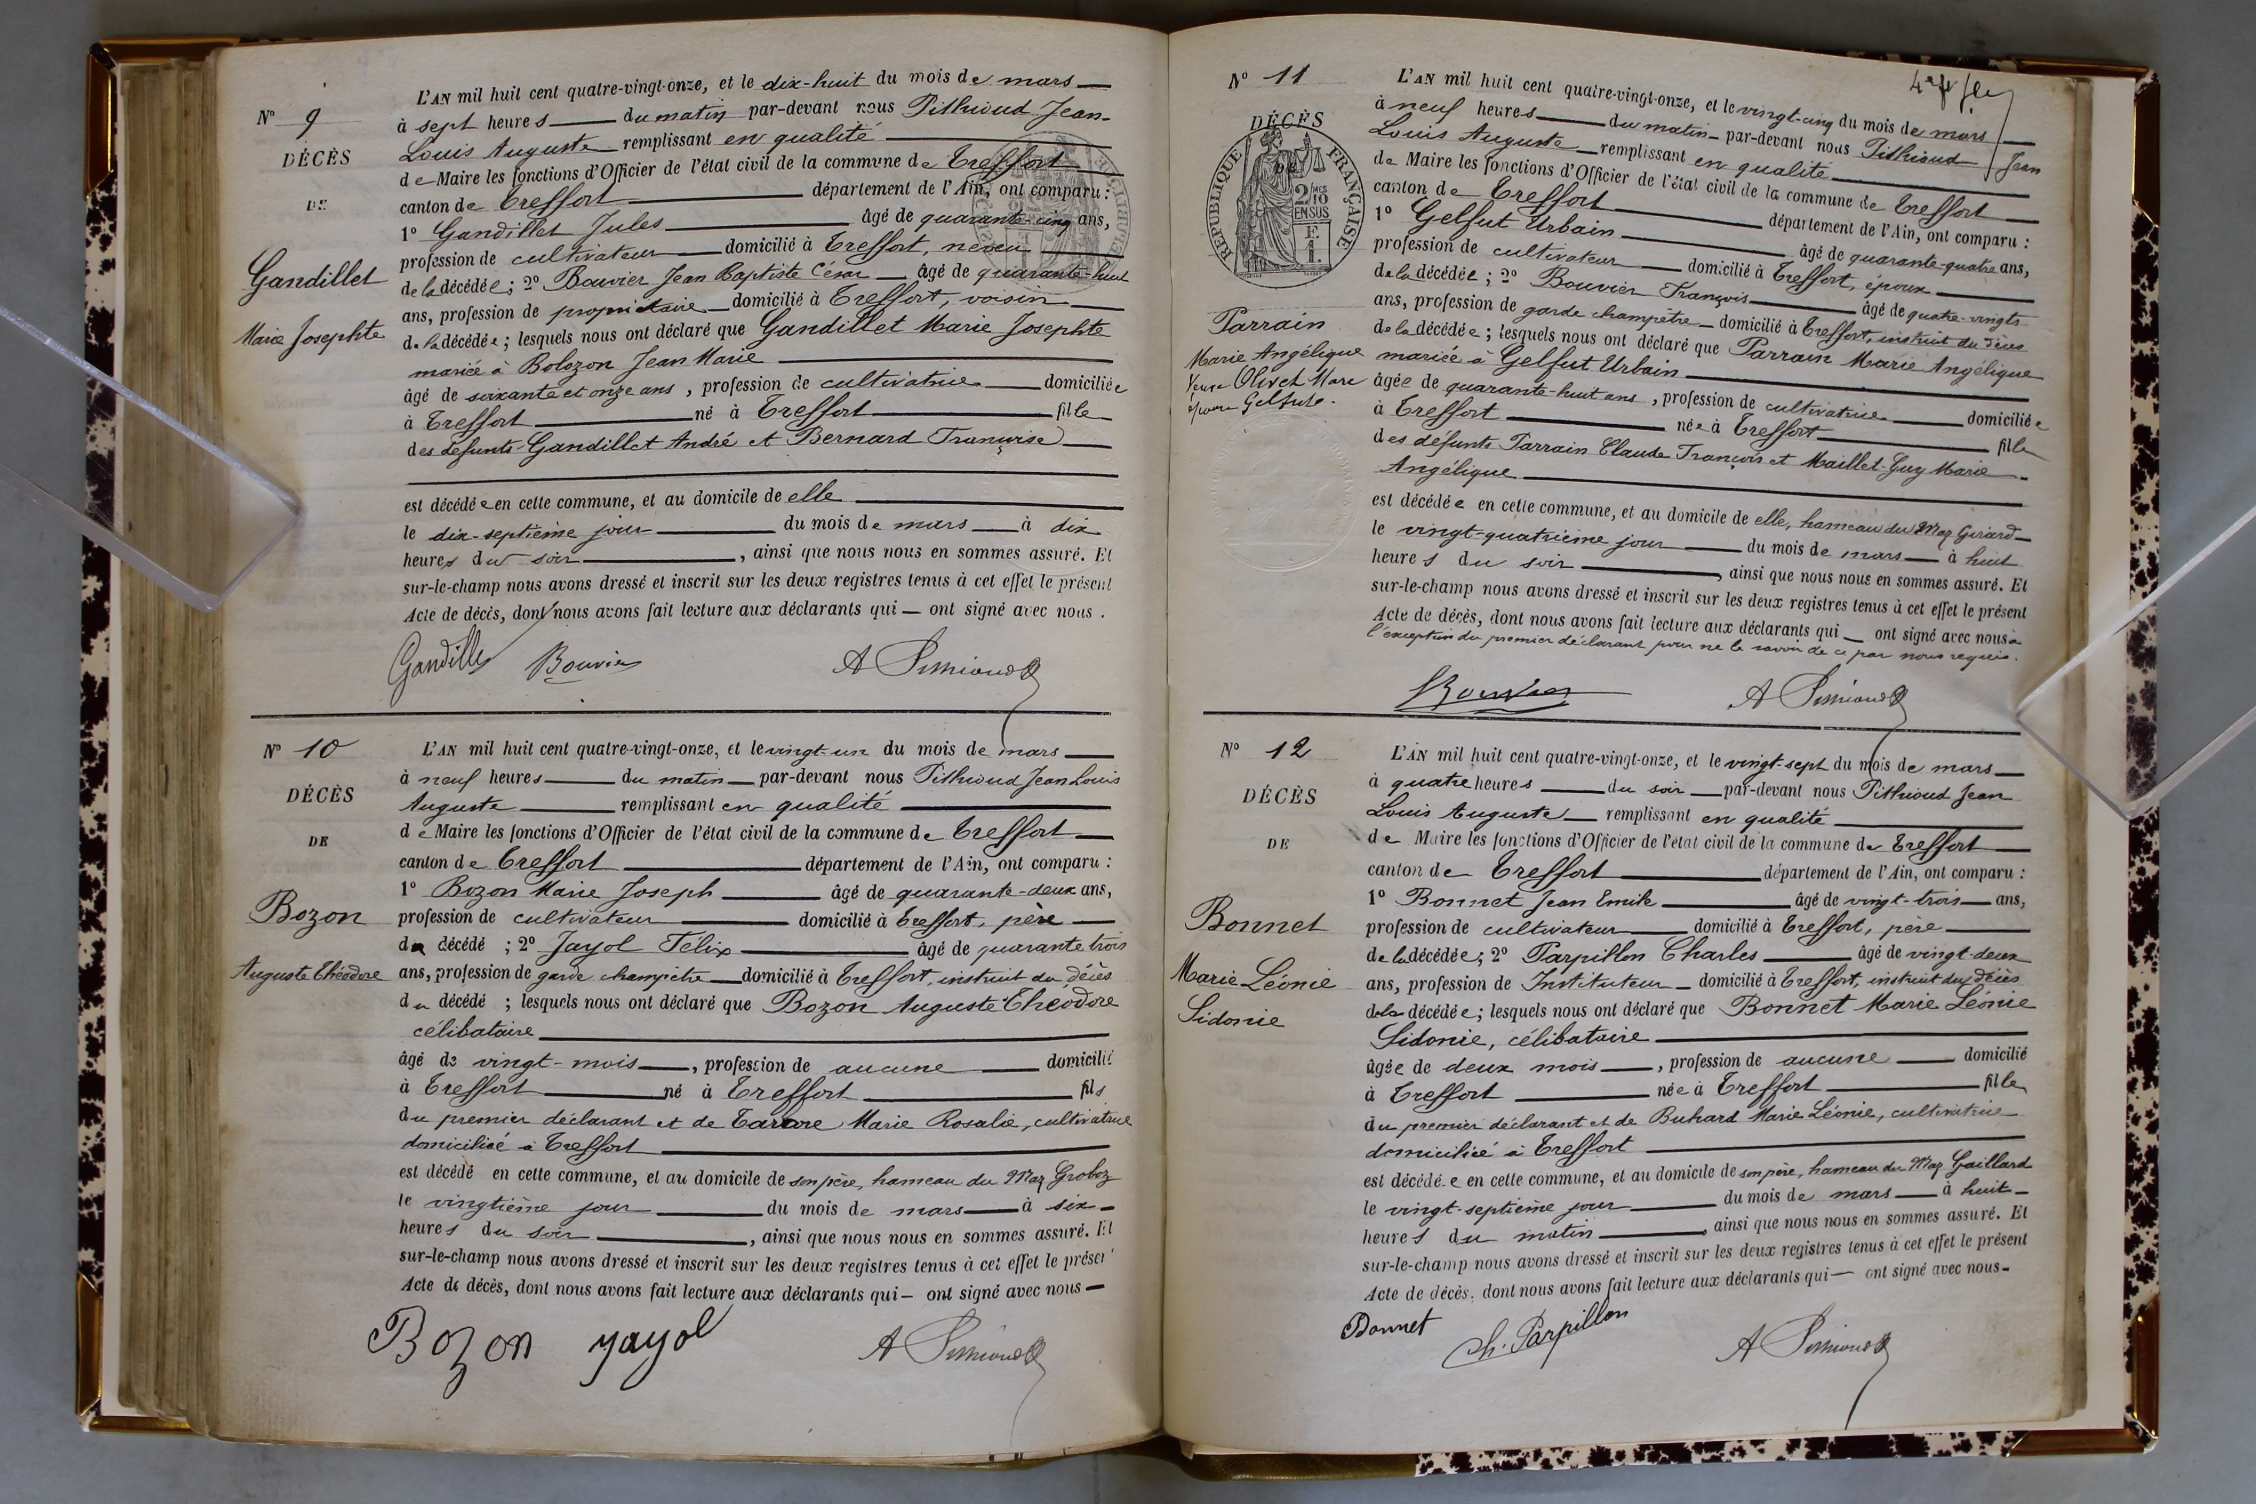 N° 9
DÉCÈS
DE
Gandillet
Marie Josephte
L'AN mil huit cent quatre-vingt-onze, et le dix-huit du mois de mars
à sept heures du matin par-devant nous Pithioud Jean-
Louis Auguste remplissant en qualité
de Maire les fonctions d'Officier de l'état civil de la commune de Treffort
canton de Treffort département de l'Ain, ont comparu :
1° Gandillet Jules âgé de quarante-cinq ans,
profession de cultivateur domicilié à Treffort, neveu
de la décédée ; 2° Bouvier Jean Baptiste César âgé de quarante-huit
ans, profession de propriétaire domicilié à Treffort, voisin
de la décédée ; lesquels nous ont déclaré que Gandillet Marie Josephte
mariée à Bolozon Jean Marie
âgé de soixante et onze ans, profession de cultivatrice domiciliée
à Treffort né à Treffort fille
des défunts Gandillet André et Bernard Françoise
est décédée en cette commune, et au domicile de elle
le dix-septième jour du mois de mars à dix
heures du soir, ainsi que nous nous en sommes assuré. Et
sur-le-champ nous avons dressé et inscrit sur les deux registres tenus à cet effet le présent
Acte de décès, dont nous avons fait lecture aux déclarants qui — ont signé avec nous.
Gandillet Bouvier A Pithioud
N° 10
DÉCÈS
DE
Bozon
Auguste Théodore
L'AN mil huit cent quatre-vingt-onze, et le vingt-un du mois de mars
à neuf heures du matin par-devant nous Pithioud Jean Louis
Auguste remplissant en qualité
de Maire les fonctions d'Officier de l'état civil de la commune de Treffort
canton de Treffort département de l'Ain, ont comparu :
1° Bozon Marie Joseph âgé de quarante-deux ans,
profession de cultivateur domicilié à Treffort, père
du décédé ; 2° Jayol Félix âgé de quarante trois
ans, profession de garde champêtre domicilié à Treffort, instruit du décès
du décédé ; lesquels nous ont déclaré que Bozon Auguste Théodore
célibataire
âgé de vingt-mois, profession de aucune domicilié
à Treffort né à Treffort fils
du premier déclarant et de Marie Rosalie, cultivatrice
domiciliée à Treffort
est décédé en cette commune, et au domicile de son père, hameau du Maz Groboz
le vingtième jour du mois de mars à six
heures du soir, ainsi que nous nous en sommes assuré. Et
sur-le-champ nous avons dressé et inscrit sur les deux registres tenus à cet effet le présent
Acte de décès, dont nous avons fait lecture aux déclarants qui — ont signé avec nous —
Bozon Jayol A Pithioud
N° 11
DÉCÈS
DE
RÉPUBLIQUE FRANÇAISE
2/10 EN SUS
Parrain
Marie Angélique
Veuve Olivet Marc
épouse Gelfut.
L'AN mil huit cent quatre-vingt-onze, et le vingt-cinq du mois de mars
à neuf heures du matin par-devant nous Pithioud Jean
Louis Auguste remplissant en qualité
de Maire les fonctions d'Officier de l'état civil de la commune de Treffort
canton de Treffort département de l'Ain, ont comparu :
1° Gelfut Urbain âgé de quarante-quatre ans,
profession de cultivateur domicilié à Treffort, époux
de la décédée ; 2° Bouvier François âgé de quatre-vingts
ans, profession de garde champêtre domicilié à Treffort, instruit du décès
de la décédée ; lesquels nous ont déclaré que Parrain Marie Angélique
mariée à Gelfut Urbain
âgée de quarante-huit ans, profession de cultivatrice domiciliée
à Treffort née à Treffort fille
des défunts Parrain Claude François et Maillet-Guy Marie
Angélique
est décédée en cette commune, et au domicile de elle, hameau du Maz Girard
le vingt-quatrième jour du mois de mars à huit
heures du soir, ainsi que nous nous en sommes assuré. Et
sur-le-champ nous avons dressé et inscrit sur les deux registres tenus à cet effet le présent
Acte de décès, dont nous avons fait lecture aux déclarants qui — ont signé avec nous à
l'exception du premier déclarant pour ne le savoir de ce par nous requis.
Bouvier A Pithioud
N° 12
DÉCÈS
DE
Bonnet
Marie Léonie
Sidonie
L'AN mil huit cent quatre-vingt-onze, et le vingt-sept du mois de mars
à quatre heures du soir par-devant nous Pithioud Jean
Louis Auguste remplissant en qualité
de Maire les fonctions d'Officier de l'état civil de la commune de Treffort
canton de Treffort département de l'Ain, ont comparu :
1° Bonnet Jean Emile âgé de vingt-trois ans,
profession de cultivateur domicilié à Treffort, père
de la décédée ; 2° Parpillon Charles âgé de vingt-deux
ans, profession de Instituteur domicilié à Treffort, instruit du décès
de la décédée ; lesquels nous ont déclaré que Bonnet Marie Léonie
Sidonie, célibataire
âgée de deux mois, profession de aucune domicilié
à Treffort née à Treffort fille
du premier déclarant et de Buhard Marie Léonie, cultivatrice
domiciliée à Treffort
est décédée en cette commune, et au domicile de son père, hameau du Maz Gaillard
le vingt-septième jour du mois de mars à huit
heures du matin, ainsi que nous nous en sommes assuré. Et
sur-le-champ nous avons dressé et inscrit sur les deux registres tenus à cet effet le présent
Acte de décès, dont nous avons fait lecture aux déclarants qui — ont signé avec nous —
Bonnet Ch. Parpillon A Pithioud